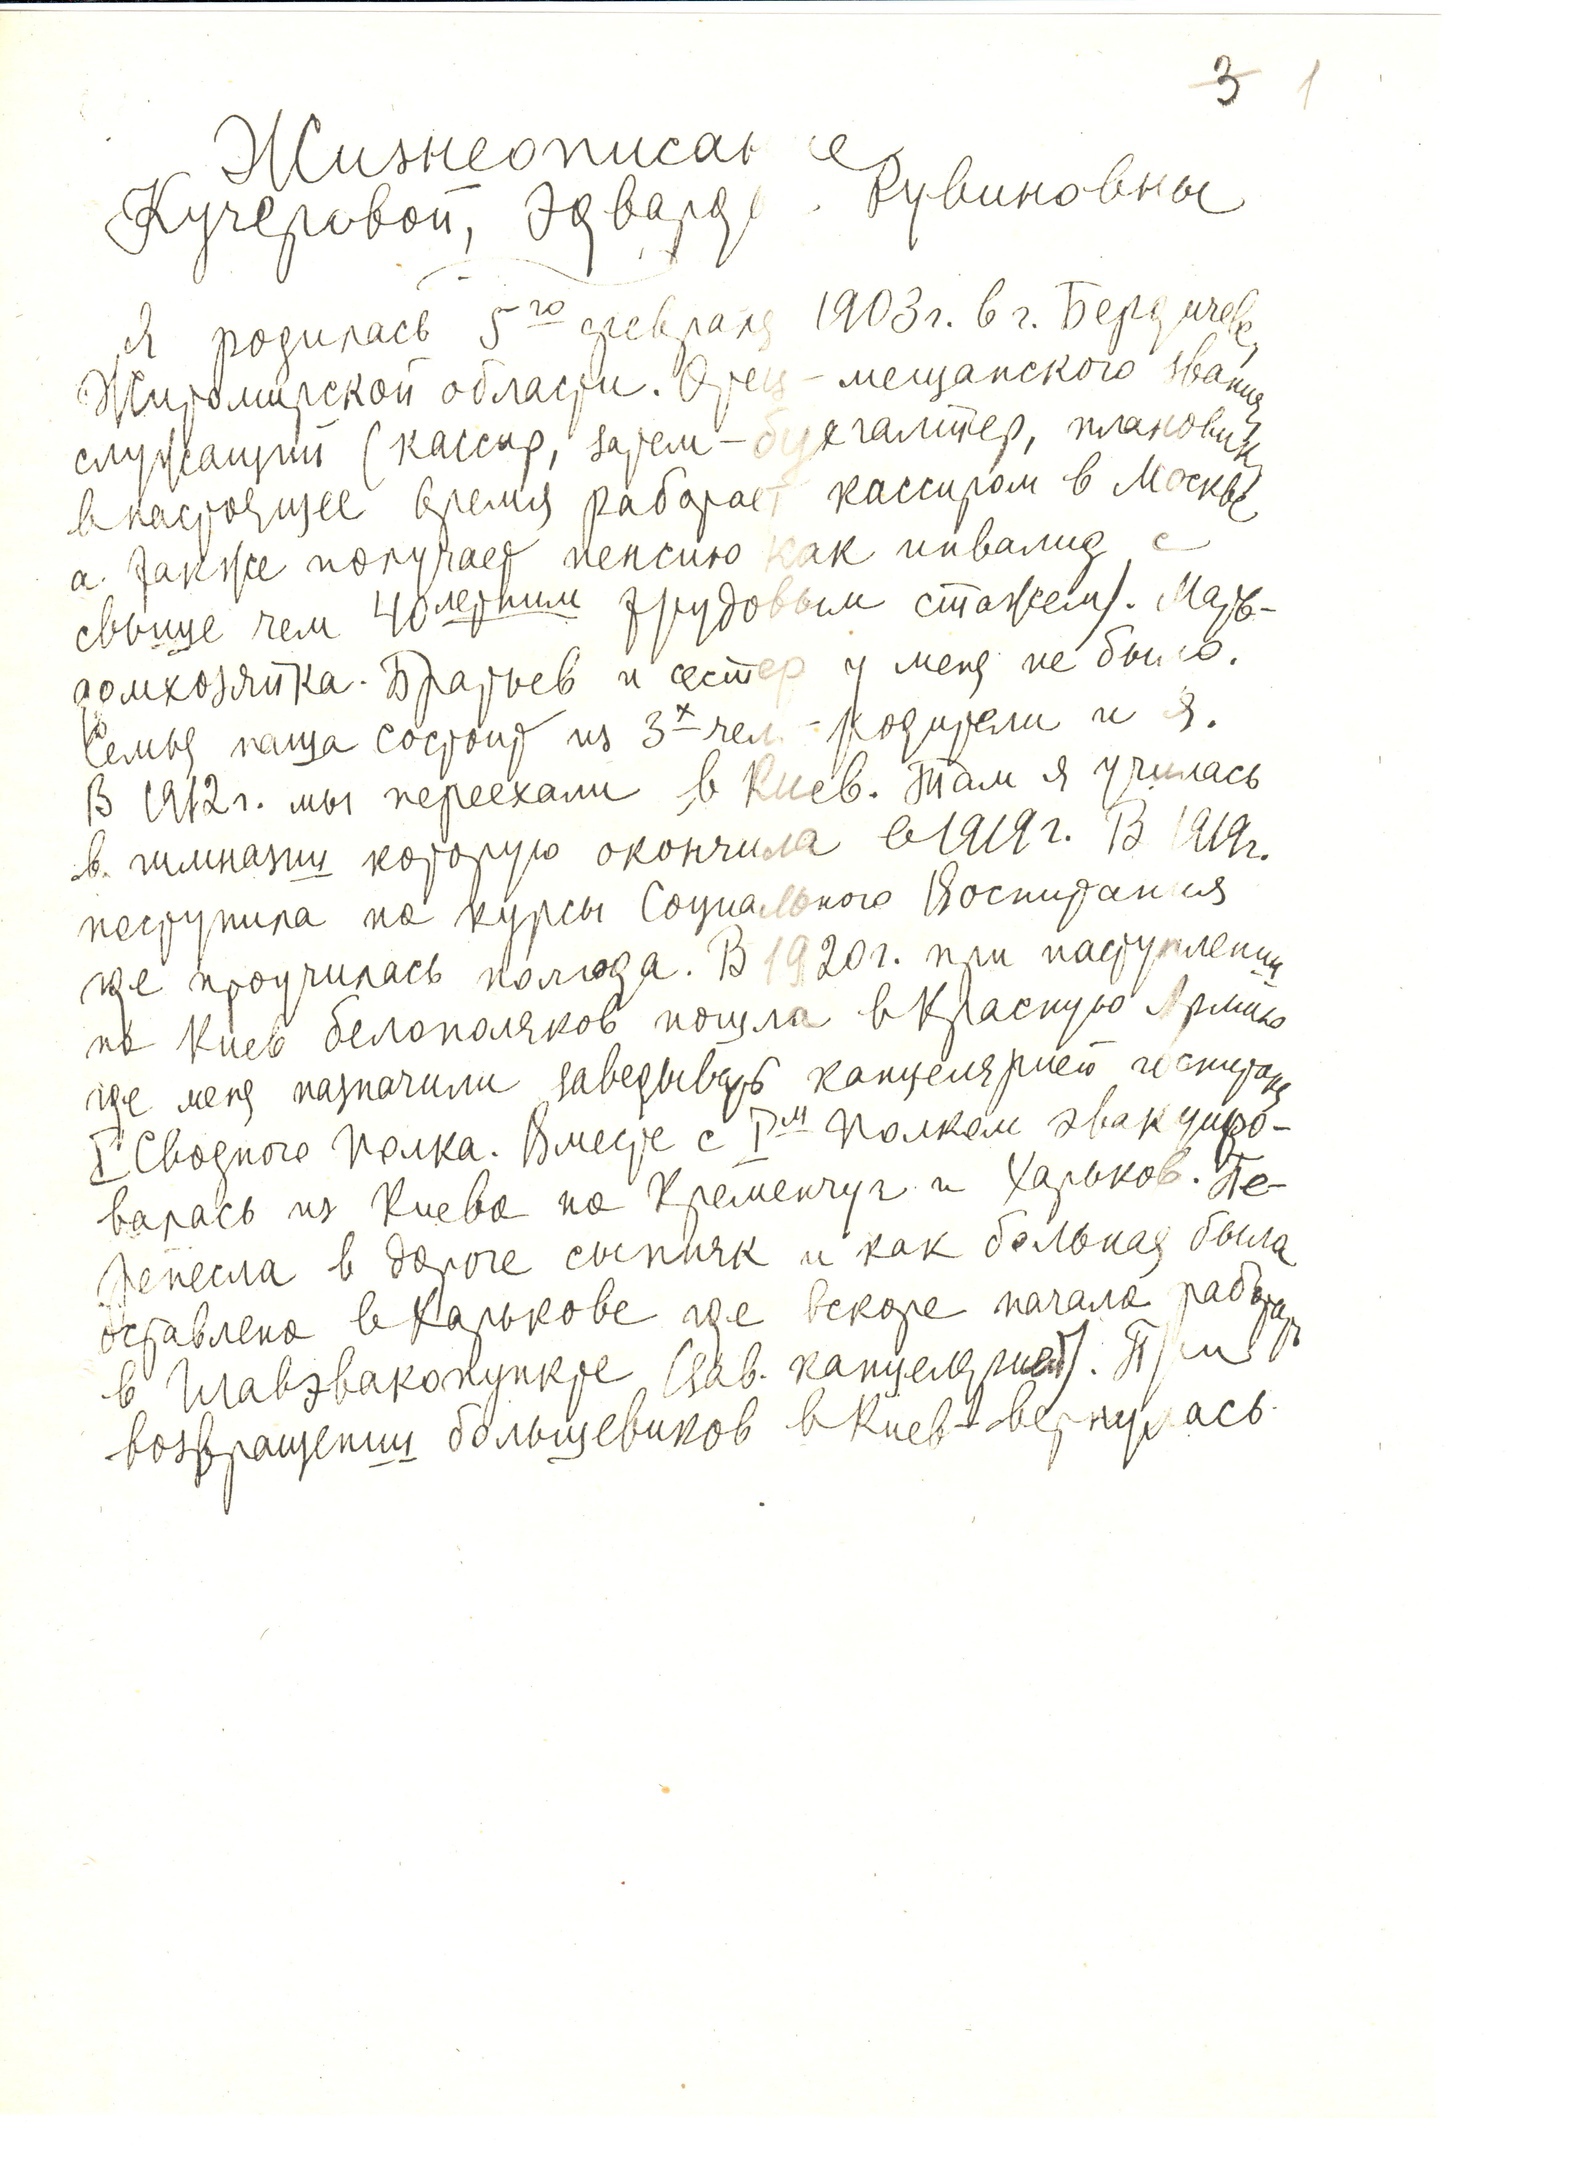 3 1
Жизнеописание
Кучеровой, Эдварды Рувиновны
Я родилась 5го февраля 1903 г. в г. Бердичеве,
Житомирской области. Отец - мещанского звания,
служащий (кассир, затем - бухгалтер, плановик,
в настоящее время работает кассиром в Москве
а также получает пенсию как инвалид с
свыше чем 40летним трудовым стажем). Мать-
домхозяйка. Братьев и сестер у меня не было.
Семья наша состоит из 3х чел - родители и я.
В 1912 г. мы переехали в Киев. Там я училась
в гимназии которую окончила в 1919 г. В 1919 г.
поступила на курсы Социального Воспитания
где проучилась полгода. В 1920 г. при наступлении
на Киев белополяков пошла в Красную Армию
где меня назначили заведывать канцелярией госпиталя
I Сводного Полка. Вместе с Iм Полком эвакуиро-
валась из Киева на Кременчуг и Харьков. Пе-
ренесла в дороге сыпняк и как больная была
оставлена в Харькове где вскоре начала работать
в Главэвакопункте (зав. канцелярией). При
возвращении большевиков в Киев - вернулась